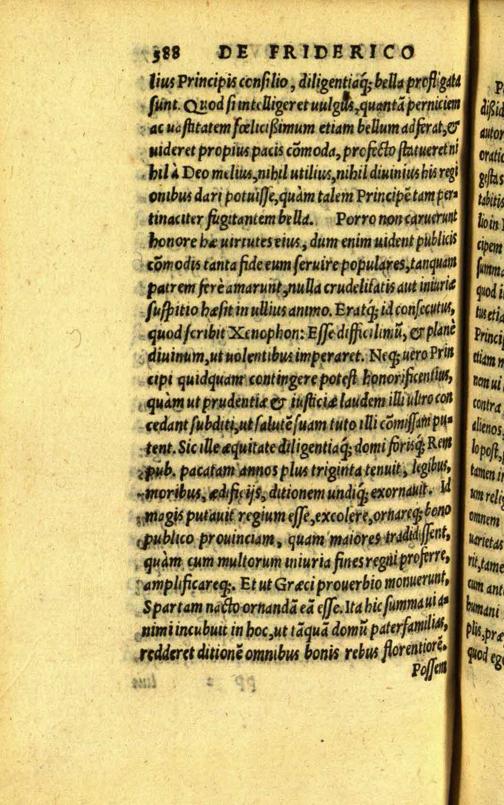 388 DE FRIDERICO
lius Principis consilio, diligentiaq́; bella profligata
sunt. Quod si intelligeret uulgus, quantā perniciem
ac uastitatem fœlicißimum etiam bellum adferat, &
uideret propius pacis cōmoda, profecto statueret ni
hil à Deo melius, nihil utilius, nihil diuinius his regi
onibus dari potuisse, quàm talem Principē tam per-
tinaciter fugitantem bella. Porro non caruerunt
honore hæ uirtutes eius, dum enim uident publicis
cōmodis tanta fide eum seruire populares, tanquam
patrem ferè amarunt, nulla crudelitatis aut iniuriæ
suspitio hæsit in ullius animo. Eratq́; id consecutus,
quod scribit Xenophon: Esse difficilimū, & planè
diuinum, ut uolentibus imperaret. Neq; uero Prin
cipi quidquam contingere potest honorificentius,
quàm ut prudentiæ & iusticiæ laudem illi ultro con
cedant subditi, ut salutē suam tuto illi cōmissam pu-
tent. Sic ille æquitate diligentiaq́; domi forisq́; Rem
pub. pacatam annos plus triginta tenuit, legibus,
moribus, ædificijs, ditionem undiq; exornauit. Id
magis putauit regium esse, excolere, ornareq; bono
publico prouinciam, quam maiores tradidissent,
quàm cum multorum iniuria fines regni proferre,
amplificareq;. Et ut Græci prouerbio monuerunt,
Spartam nacto ornandā eā esse. Ita hic summa ui a-
nimi incubuit in hoc, ut tāquā domū paterfamilias,
redderet ditionē omnibus bonis rebus florentiorē.
Possem
P
dißid
autor
oratio
gestas
tabitis
lio in
cipem
summa
quod i
tus etia
Princi
etiam n
non ui
contra
alienos
lo post,
tamen i
um reli
omnem
uarietas
rit, tame
cum ant
humani
plis, præ
quod eg